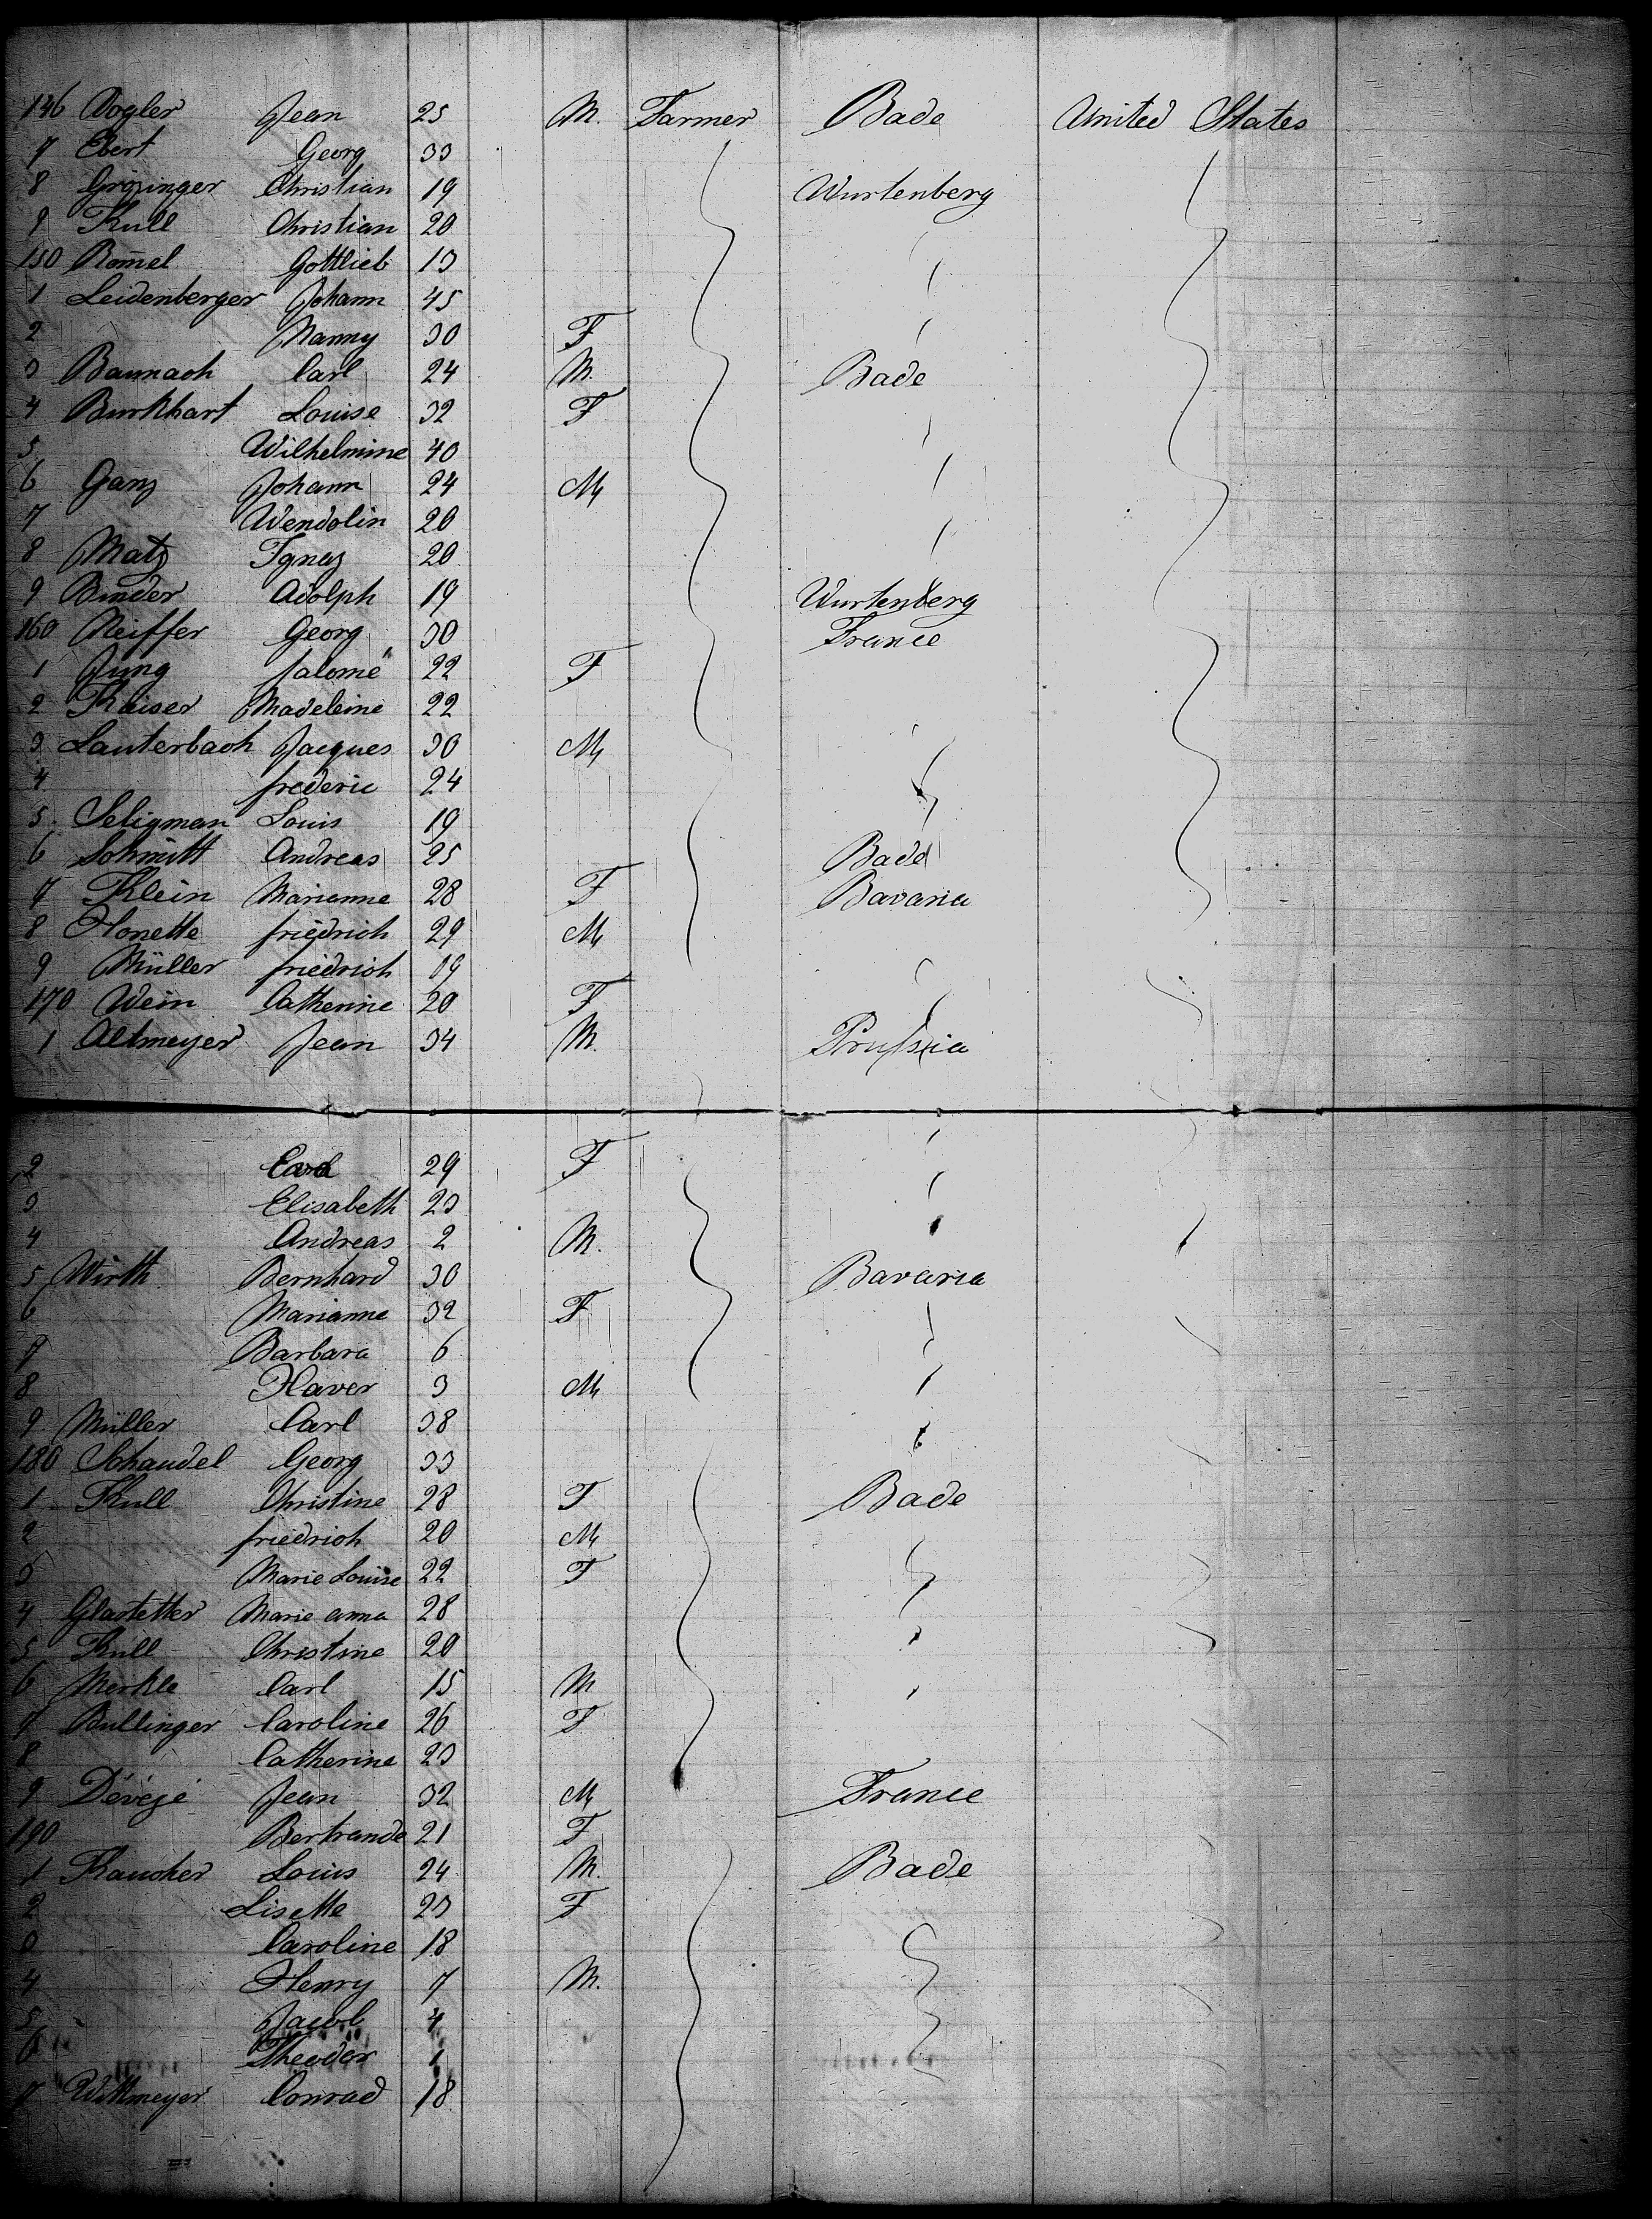 146 Vogler Jean 25 M. Farmer Bade United States
7 Ebert Georg 33
8 Grözinger Christian 19 Wurtenberg
9 Kull Christian 20
150 Rom̅el Gottlieb 13
1 Leidenberger Johann 45
2 Nanny 30 F
3 Baumach Carl 24 M. Bade
4 Burkhart Louise 32 F
5 Wilhelmine 40
6 Ganz Johann 24 M
7 Wendolin 20
8 Matz Ignaz 20
9 Binder Adolph 19 Wurtenberg
160 Neiffer Georg 30 France
1 Jung Salomé 22 F
2 Kaiser Madeleine 22
3 Lauterbach Jacques 30 M
4 frederic 24
5 Seligman Louis 19
6 Schmitt Andreas 25 Bade
7 Klein Marianne 28 F Bavaria
8 Honette friedrich 29 M
9 Müller friedrich 19
170 Wein Catherine 20 F
1 Altmeyer Jean 34 M. Prussia
2 29 F
3 Elisabeth 23
4 Andreas 2 M.
5 Wirth Bernhard 30 Bavaria
6 Marianne 32 F
7 Barbara 6
8 Xaver 3 M
9 Müller Carl 38
180 Schaudel Georg 33
1 Kull Christine 28 F Bade
2 friedrich 20 M
3 Marie Louise 22 F
4 Glastetter Marie anna 28
5 Kull Christine 20
6 Merkle Carl 15 M
7 Bullinger Caroline 26 F
8 Catherine 23
9 Dévéjé Jean 32 M France
190 Bertrande 21 F
1 Kaucher Louis 24 M. Bade
2 Lisette 23 F
3 Caroline 18
4 Henry 7 M.
5 Jacob 4
6 Theodor 1
7 Wittmeyer Conrad 18